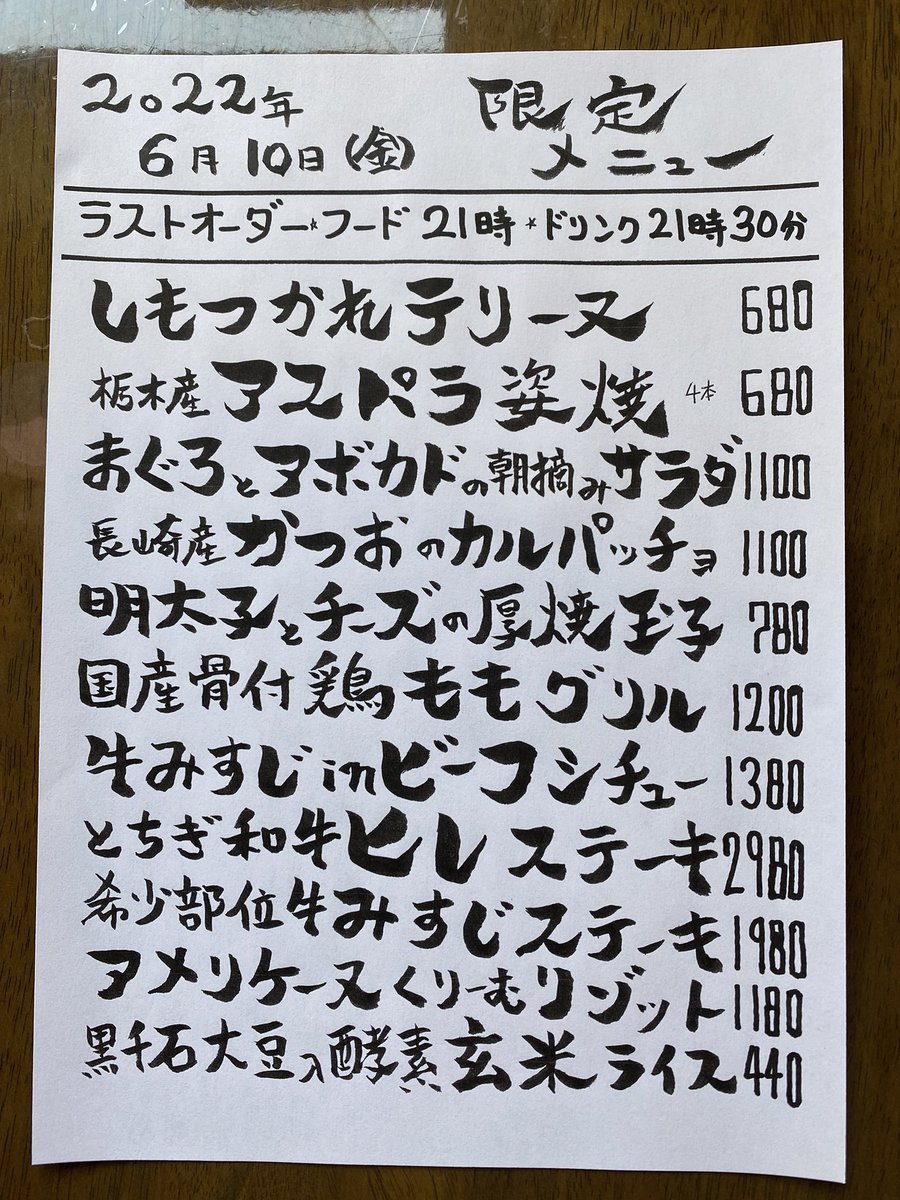 2022年 限定
6月10日(金) メニュー
ラストオーダー★フード21時★ドリンク21時30分
しもつかれテリーヌ 680
栃木産アスパラ姿焼 4本 680
まぐろとアボカドの朝摘みサラダ 1100
長崎産かつおのカルパッチョ 1100
明太子とチーズの厚焼玉子 780
国産骨付鶏ももグリル 1200
牛みすじinビーフシチュー 1380
とちぎ和牛ヒレステーキ 2980
希少部位牛みすじステーキ 1980
アメリケーヌくりーむリゾット 1180
黒千石大豆入酵素玄米ライス 440